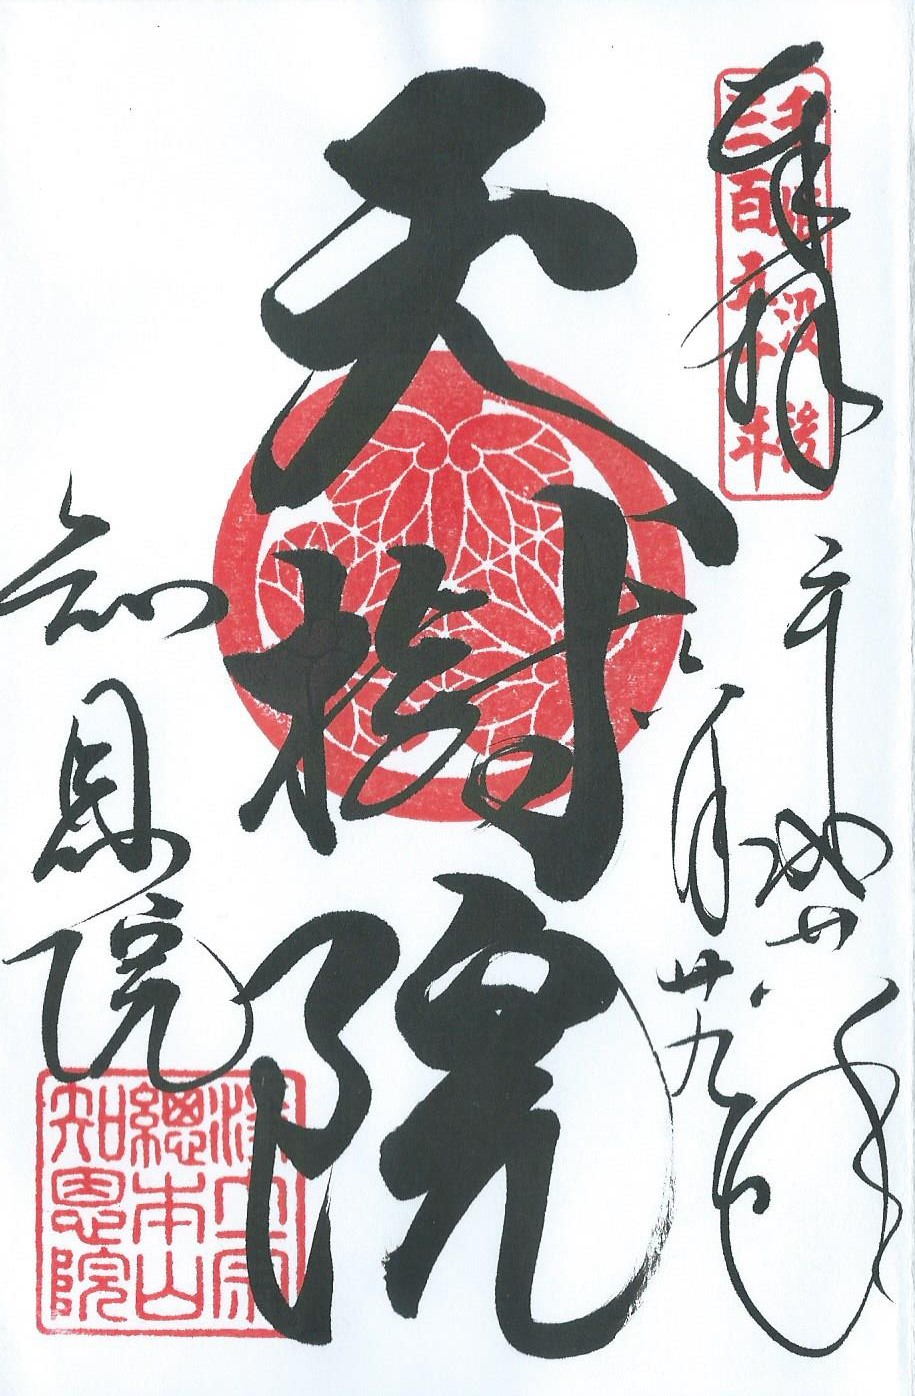 千姫没後
三百五十年
奉拝
平成廿八年
三月廿九日
天樹院
知恩院
浄土宗
總本山
知恩院